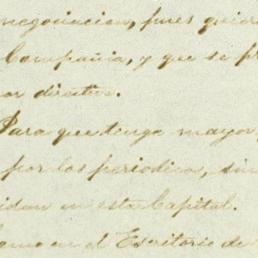 negociacion, pues quier
Compañia, y que se p
or directiva.
Para que tenga mayor
por los periodicos, sin
idan en esta Capital.
como en el Escritorio de